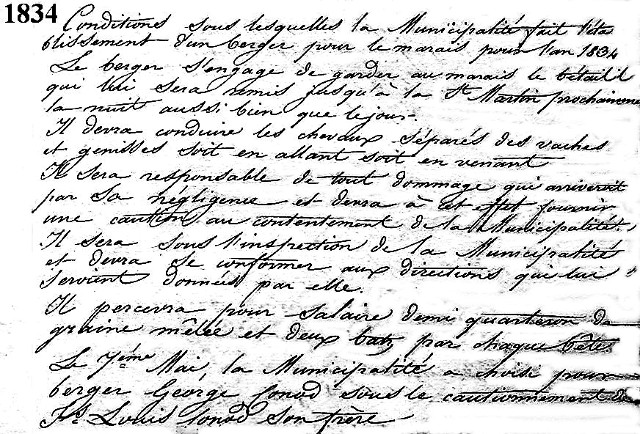 1834
Conditions sous lesquelles la Municipalité fait l'éta
blissement d'un berger pour le marais pour l'an 1834
Le berger s'engage de garder au marais le bétail
qui lui sera remis jusqu'à la St Martin prochaine
la nuit aussi bien que le jour.
Il devra conduire les chevaux séparés des vaches
et genisses soit en allant soit en venant
Il sera responsable de tout dommage qui arriverait
par sa négligence et devra à cet effet fournir
une caution au contentement de la Municipalité.
Il sera sous l'inspection de la Municipalité
et devra se conformer aux directions qui lui
seroient données par elle.
Il percevra pour salaire demi quarteron de
graine mêlée et deux batz par chaque bête.
Le 7éme Mai, la Municipalité a choisi pour
berger George Conod sous le cautionnement de
Louis Conod son frère